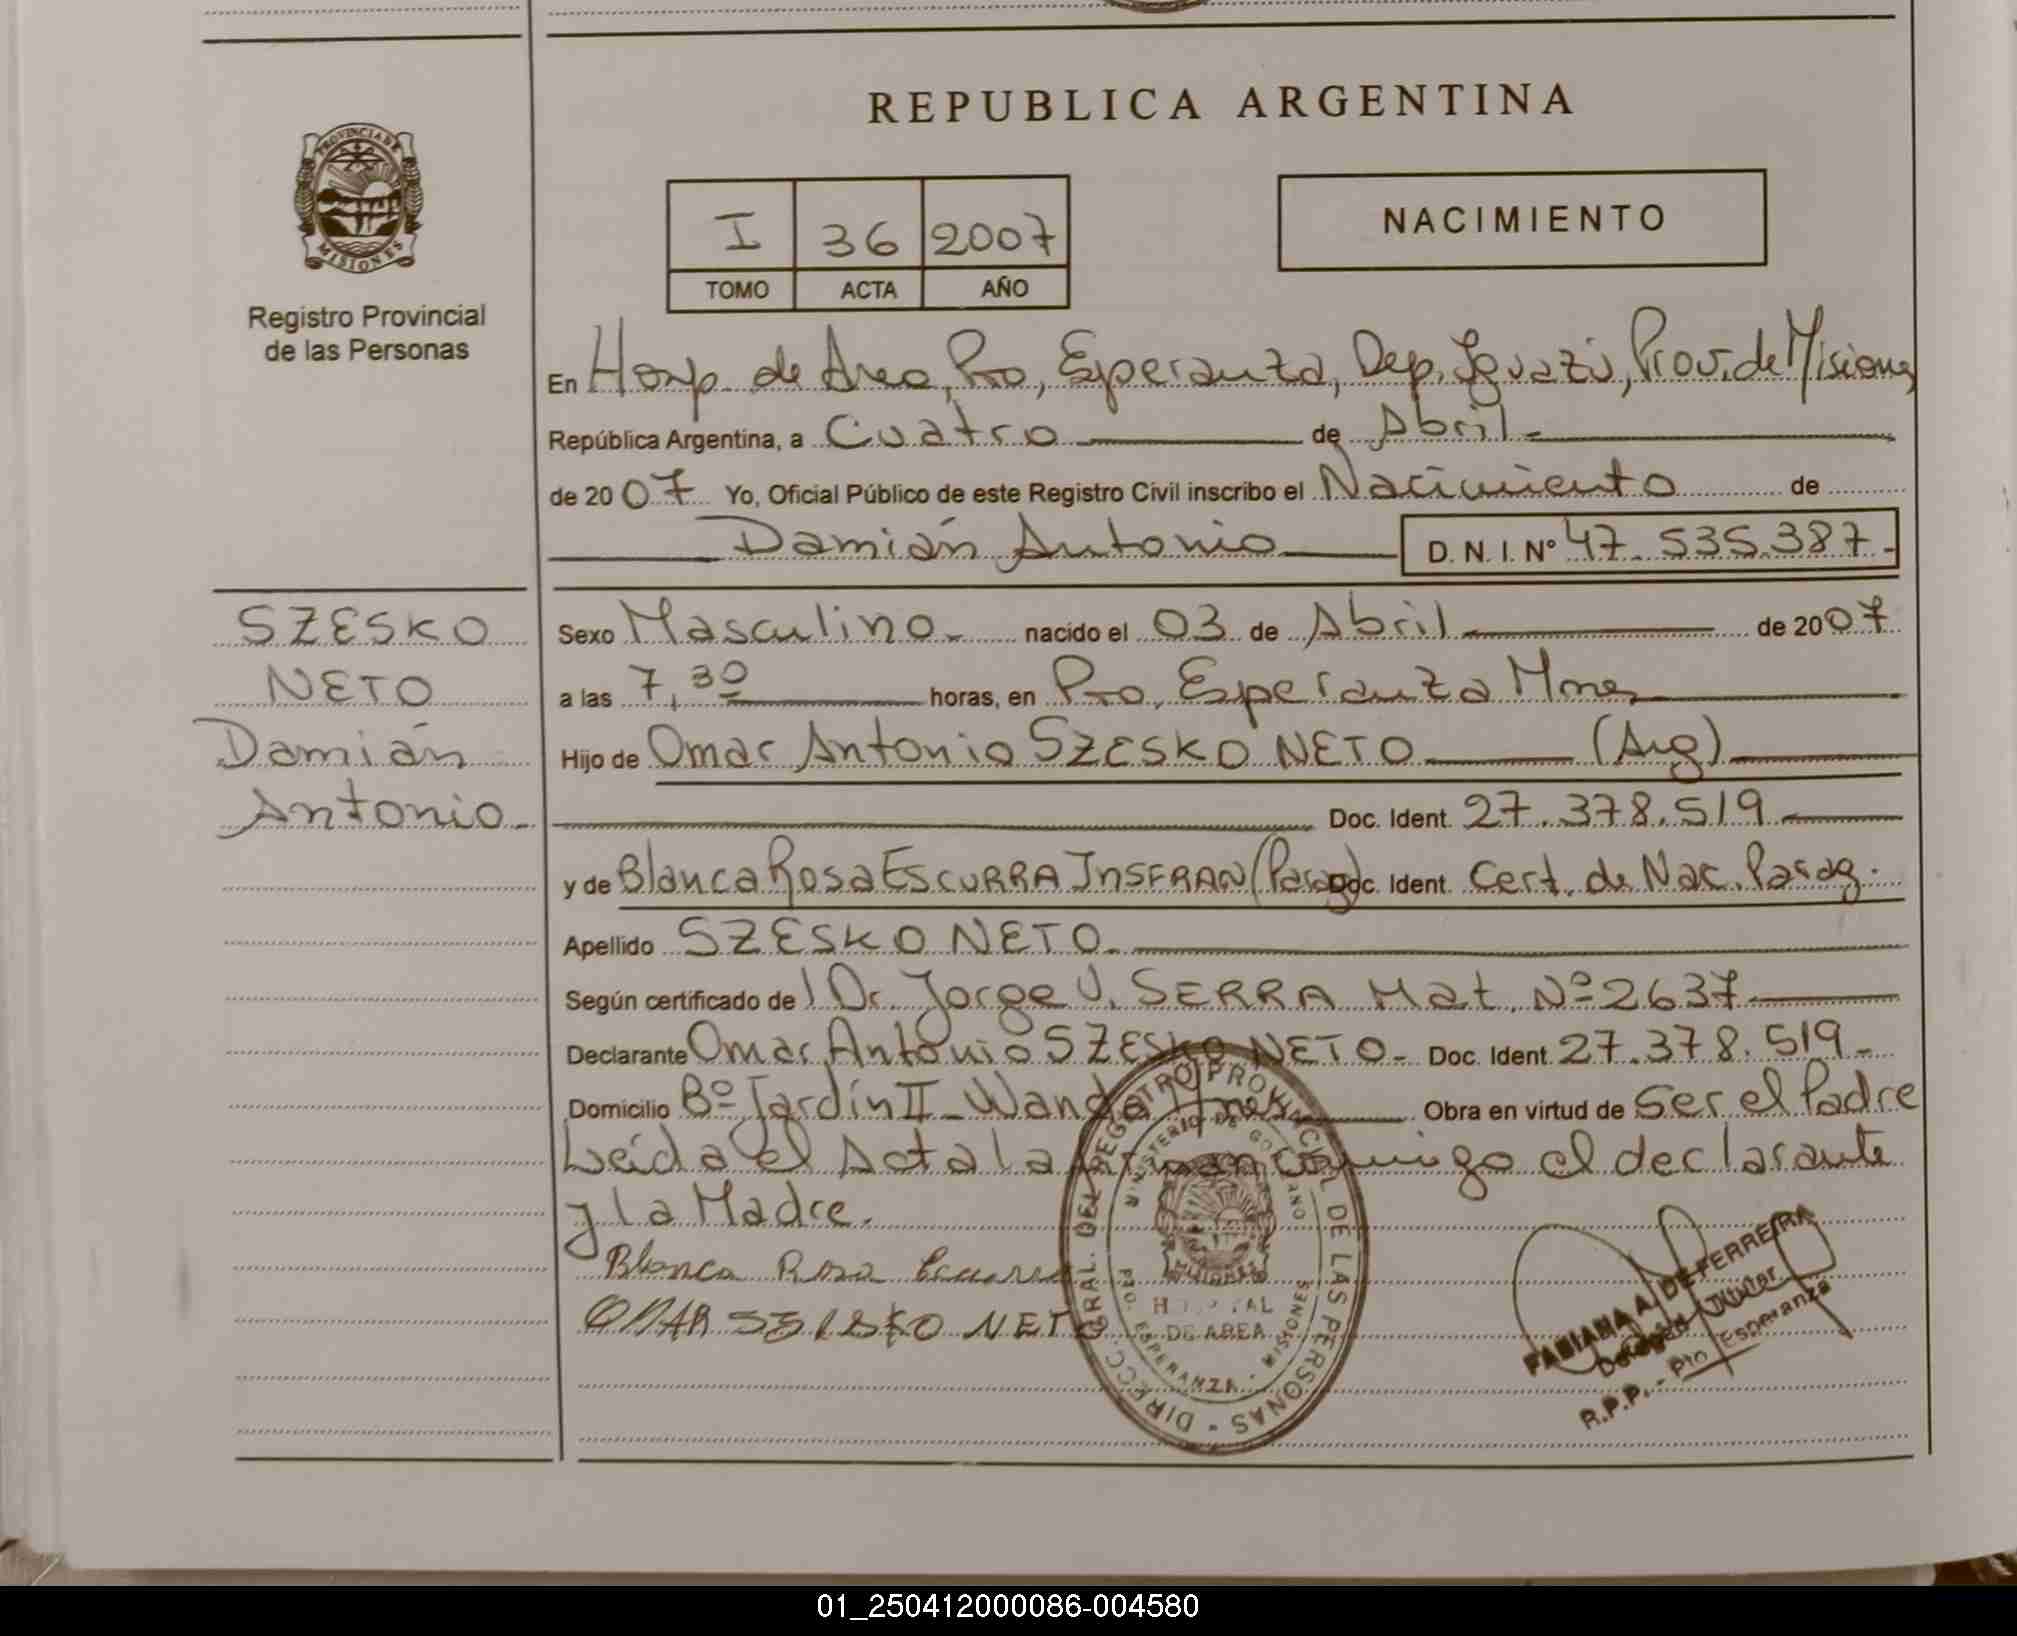 REPUBLICA ARGENTINA
PROVINCIA DE
MISIONES
Registro Provincial
de las Personas
I 36 2007
TOMO ACTA AÑO
NACIMIENTO
En Hosp. de Area, Pto, Esperanza, Dep. Iguazú, Prov. de Misiones
República Argentina, a Cuatro de Abril
de 2007 Yo, Oficial Público de este Registro Civil inscribo el Nacimiento de
Damián Antonio D. N. I. Nº 47.535.387.-
SZESKO
NETO
Damián
Antonio
Sexo Masculino nacido el 03 de Abril de 2007
a las 7,30 horas, en Pto, Esperanza Mnes
Hijo de Omar Antonio SZESKO NETO (Arg)
Doc. Ident. 27.378.519
y de Blanca Rosa ESCURRA INSFRAN (Parag) Doc. Ident. Cert. de Nac. Parag.
Apellido SZESKO NETO
Según certificado de Dr. Jorge U. SERRA Mat. Nº 2637
Declarante Omar Antonio SZESKO NETO.- Doc. Ident. 27.378.519.-
Domicilio Bº Jardín II - Wanda Mnes Obra en virtud de Ser el Padre
Leída el Acta la firman conmigo el declarante
y la Madre.
Blanca Rosa Escurra
OMAR SZESKO NETO
DIRECC. GRAL. DEL REGISTRO PROVINCIAL DE LAS PERSONAS
MINISTERIO DE GOBIERNO
MISIONES
HOSPITAL
DE AREA
PTO. ESPERANZA - MISIONES
FABIANA A. DE FERREIRA
R.P.P. - Pto Esperanza
01_250412000086-004580